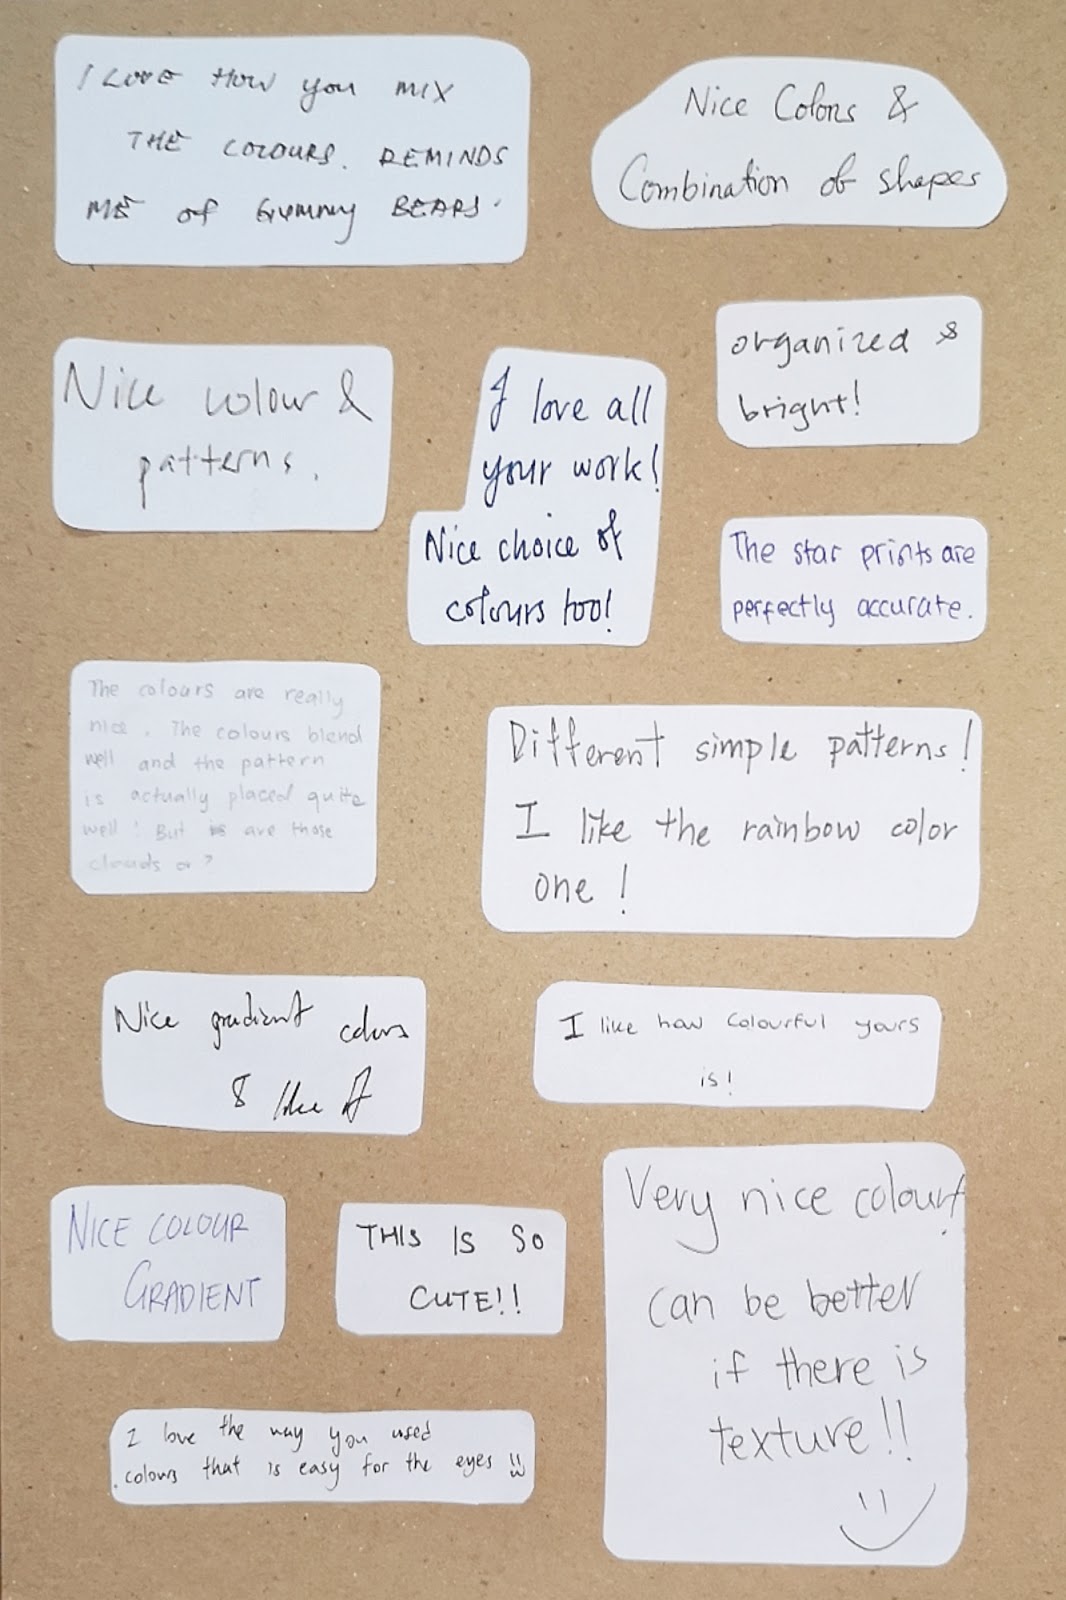 I LOVE HOW you MIX
THE COLOURS. REMINDS
ME of Gummy BEARS.
Nice Colors &
Combination of shapes
Nice colour &
patterns.
I love all
your work!
Nice choice of
colours too!
organized &
bright!
The star prints are
perfectly accurate.
The colours are really
nice. The colours blend
well and the pattern
is actually placed quite
well! But are those
clouds or?
Different simple patterns!
I like the rainbow color
one!
Nice gradient colors
& like it
I like how colourful yours
is!
NICE COLOUR
GRADIENT
THIS IS SO
CUTE!!
Very nice colour!
can be better
if there is
texture!!
I love the way you used
colours that is easy for the eyes